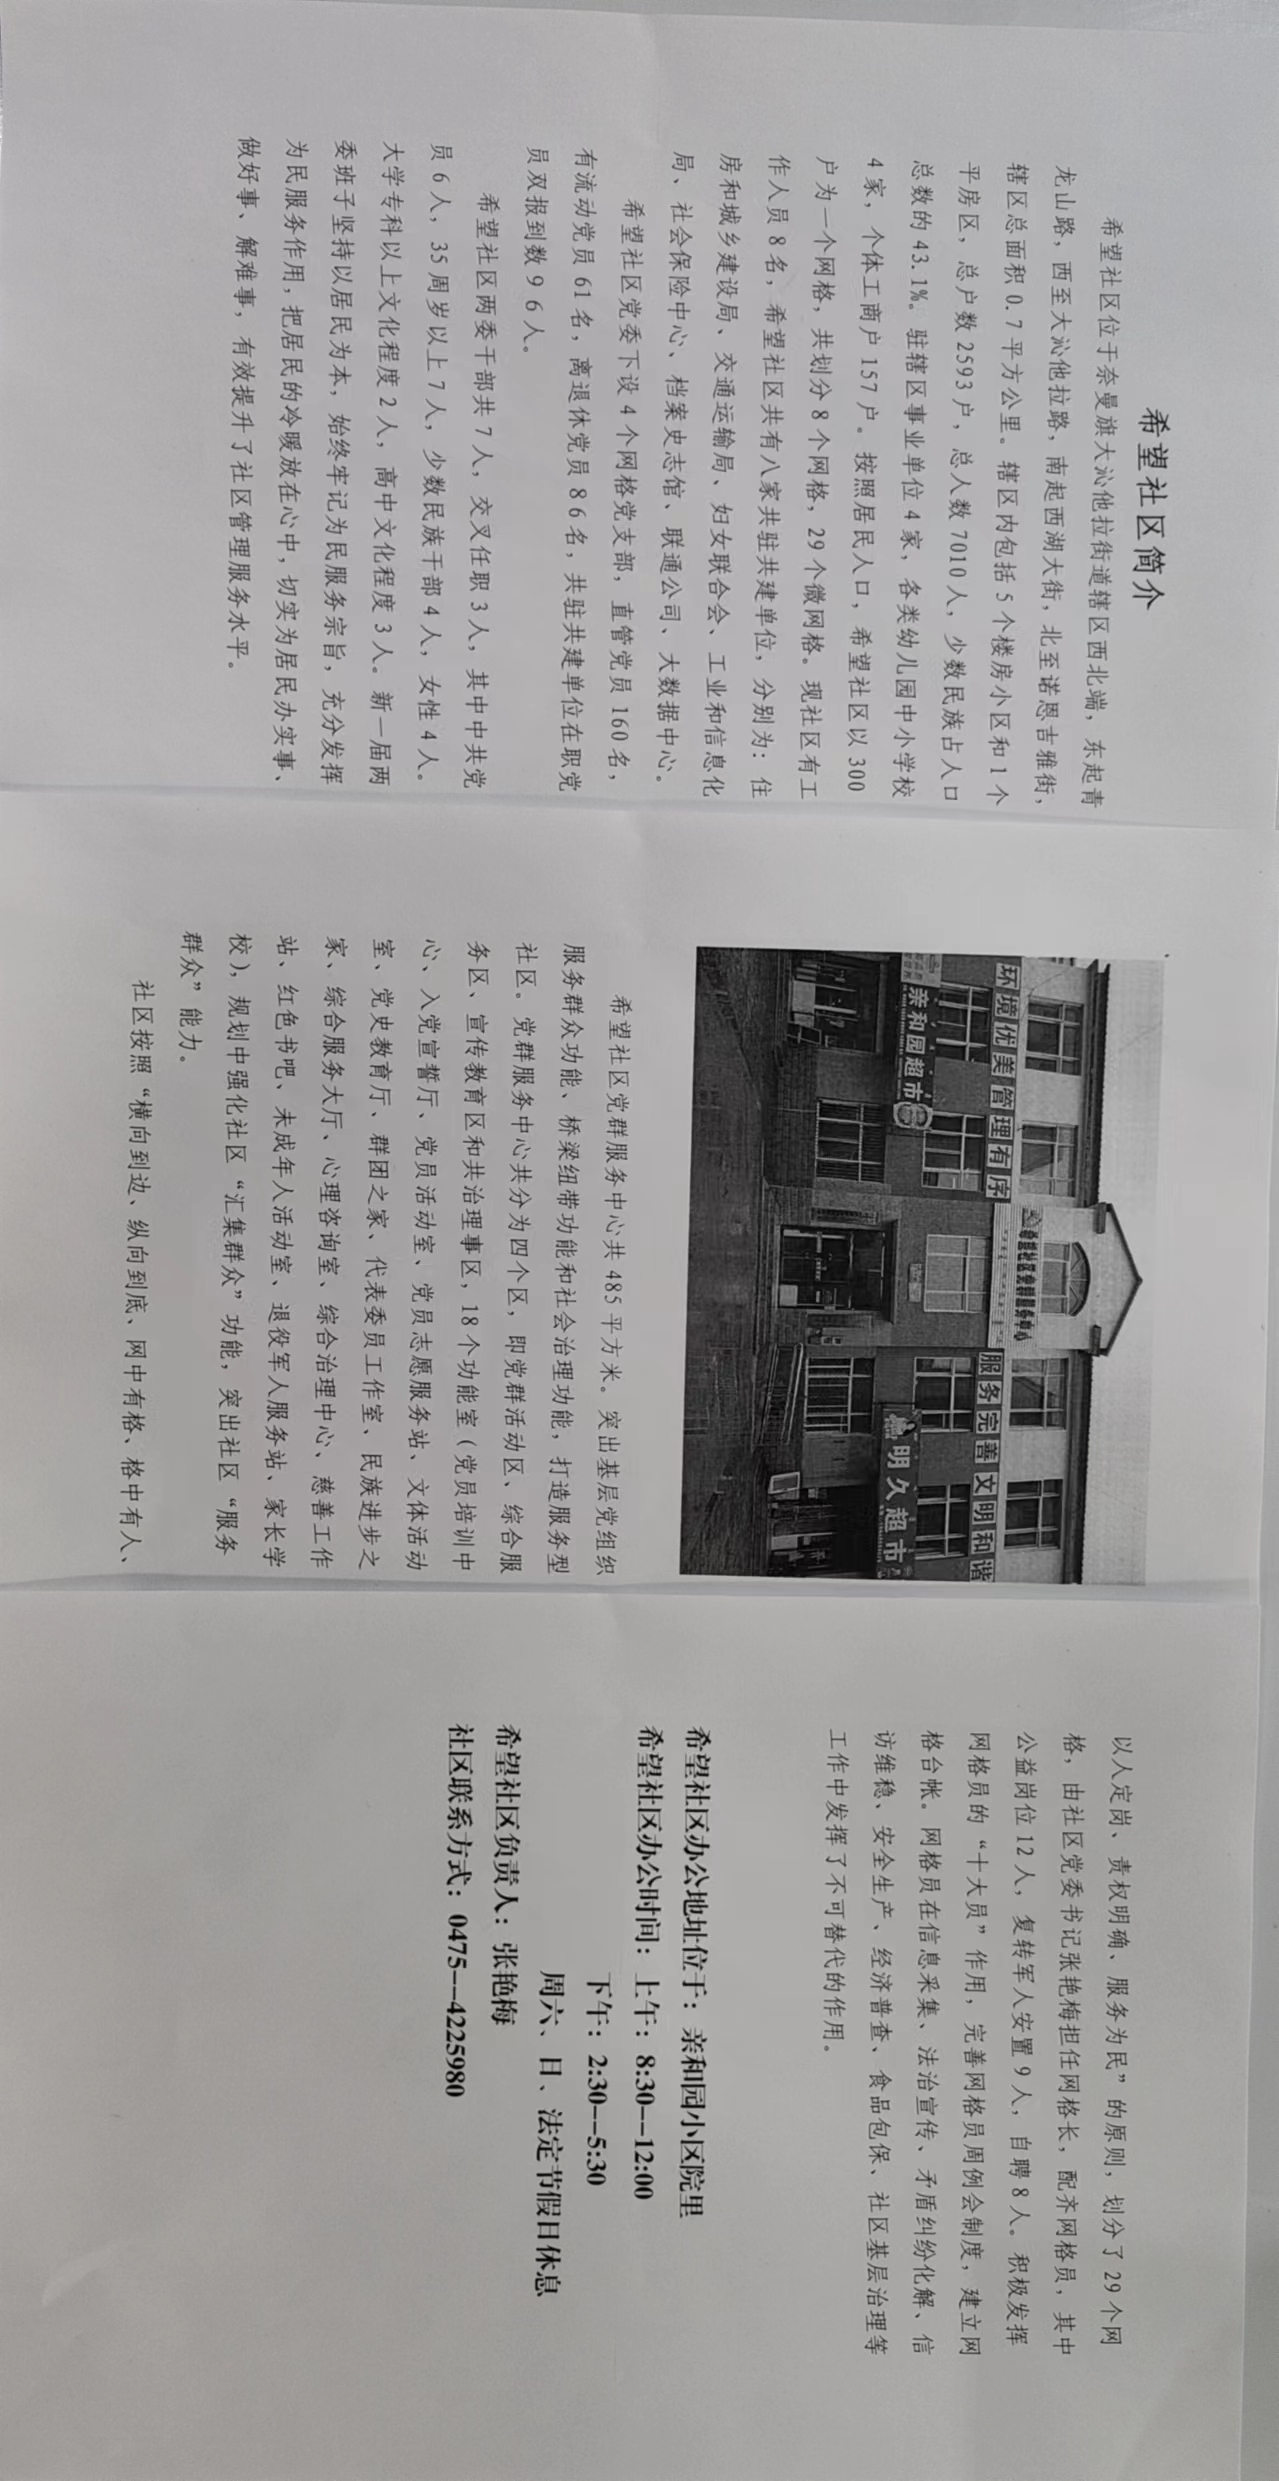 希望社区简介
希望社区位于奈曼旗大沁他拉街道辖区西北端，东起青
龙山路，西至大沁他拉路，南起西湖大街，北至诺恩吉雅街，
辖区总面积0.7平方公里。辖区内包括5个楼房小区和1个
平房区，总户数2593户，总人数7010人，少数民族占人口
总数的43.1%。驻辖区事业单位4家，各类幼儿园中小学校
4家，个体工商户157户。按照居民人口，希望社区以300
户为一个网格，共划分8个网格，29个微网格。现社区有工
作人员8名，希望社区共有八家共驻共建单位，分别为：住
房和城乡建设局、交通运输局、妇女联合会、工业和信息化
局、社会保险中心、档案史志馆、联通公司、大数据中心。
希望社区党委下设4个网格党支部，直管党员160名，
有流动党员61名，离退休党员86名，共驻共建单位在职党
员双报到数96人。
希望社区两委干部共7人，交叉任职3人，其中中共党
员6人，35周岁以上7人，少数民族干部4人，女性4人。
大学专科以上文化程度2人，高中文化程度3人。新一届两
委班子坚持以居民为本，始终牢记为民服务宗旨，充分发挥
为民服务作用，把居民的冷暖放在心中，切实为居民办实事、
做好事、解难事，有效提升了社区管理服务水平。
环境优美管理有序
服务完善文明和谐
亲和园超市
明久超市
希望社区党群服务中心共485平方米。突出基层党组织
服务群众功能、桥梁纽带功能和社会治理功能，打造服务型
社区。党群服务中心共分为四个区，即党群活动区、综合服
务区、宣传教育区和共治理事区，18个功能室（党员培训中
心、入党宣誓厅、党员活动室、党员志愿服务站、文体活动
室、党史教育厅、群团之家、代表委员工作室、民族进步之
家、综合服务大厅、心理咨询室、综合治理中心、慈善工作
站、红色书吧、未成年人活动室、退役军人服务站、家长学
校），规划中强化社区“汇集群众”功能，突出社区“服务
群众”能力。
社区按照“横向到边、纵向到底、网中有格、格中有人、
以人定岗、责权明确、服务为民”的原则，划分了29个网
格，由社区党委书记张艳梅担任网格长，配齐网格员，其中
公益岗位12人，复转军人安置9人，自聘8人。积极发挥
网格员的“十大员”作用，完善网格员周例会制度，建立网
格台帐。网格员在信息采集、法治宣传、矛盾纠纷化解、信
访维稳、安全生产、经济普查、食品包保、社区基层治理等
工作中发挥了不可替代的作用。
希望社区办公地址位于：亲和园小区院里
希望社区办公时间：上午：8:30--12:00
下午：2:30--5:30
周六、日、法定节假日休息
希望社区负责人：张艳梅
社区联系方式：0475--4225980